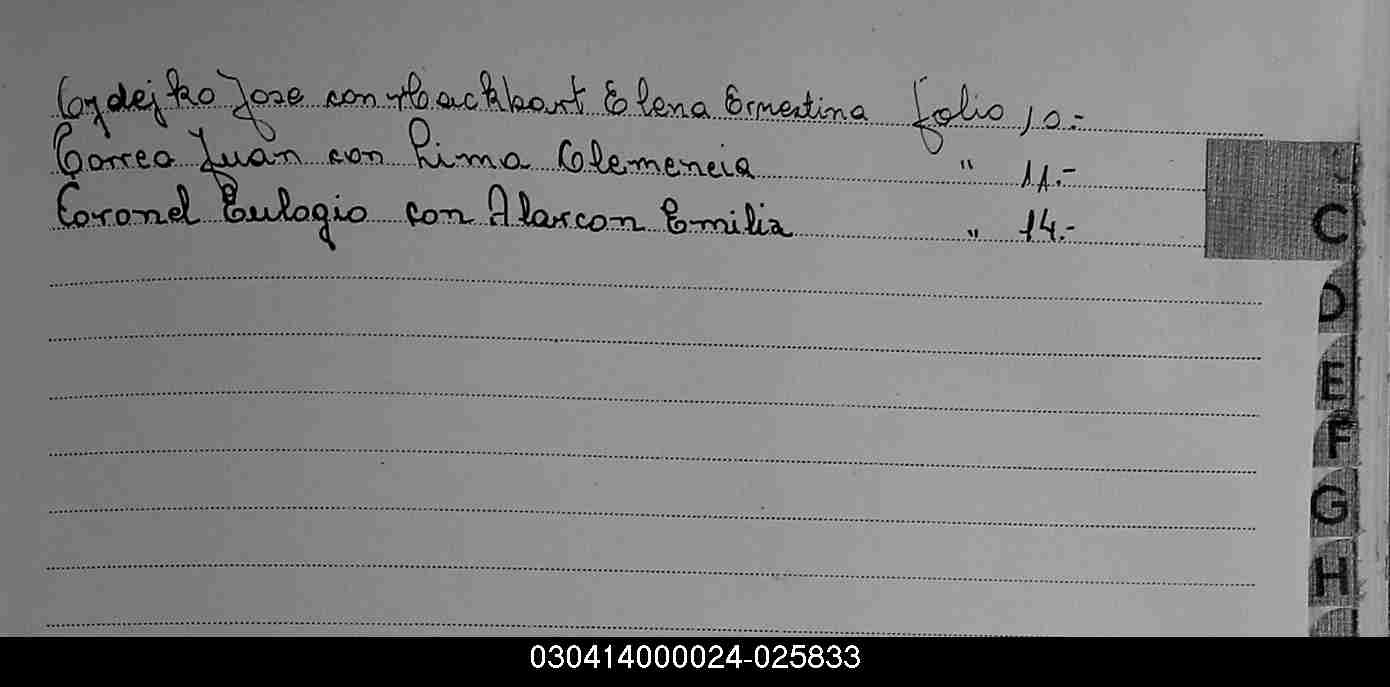 Cydejko Jose con Hackbart Elena Ernestina folio 10.-
Correa Juan con Lima Clemencia " 11.-
Coronel Eulogio con Alarcon Emilia " 14.-
C
D
E
F
G
H
030414000024-025833